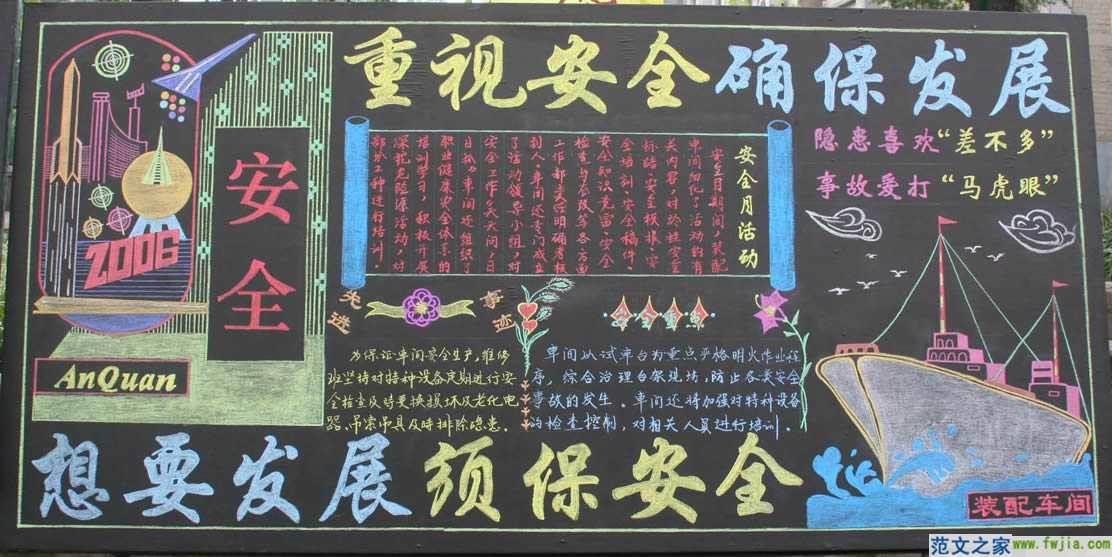 重视安全 确保发展
隐患喜欢“差不多”
事故爱打“马虎眼”
安全
2006
AnQuan
安全月活动
安全月期间,装配
车间细化了活动的有
关内容,对於挂安全
标语、安全板报、安
全培训、安全稿件、
安全知识竞赛、安全
检查与整改等各方面
工作都责任明确考核
到人。车间还专门成立
了活动领导小组,对
安全工作天天问,日
日抓。车间还组织了
职业健康安全体系的
培训学习,积极开展
深挖危险源活动,对
部分工种进行培训
先进 事迹
为保证车间安全生产,维修
班坚持对特种设备定期进行安
全检查及时更换损坏及老化电
器、吊索吊具及時排除隐患。
车间以试车台为重点严格明火作业程
序,综合治理台架现场,防止各类安全
事故的发生。车间还将加强对特种设备
的检查控制,对相关人员进行培训。
想要发展 须保安全
装配车间
范文之家 www.fwjia.com